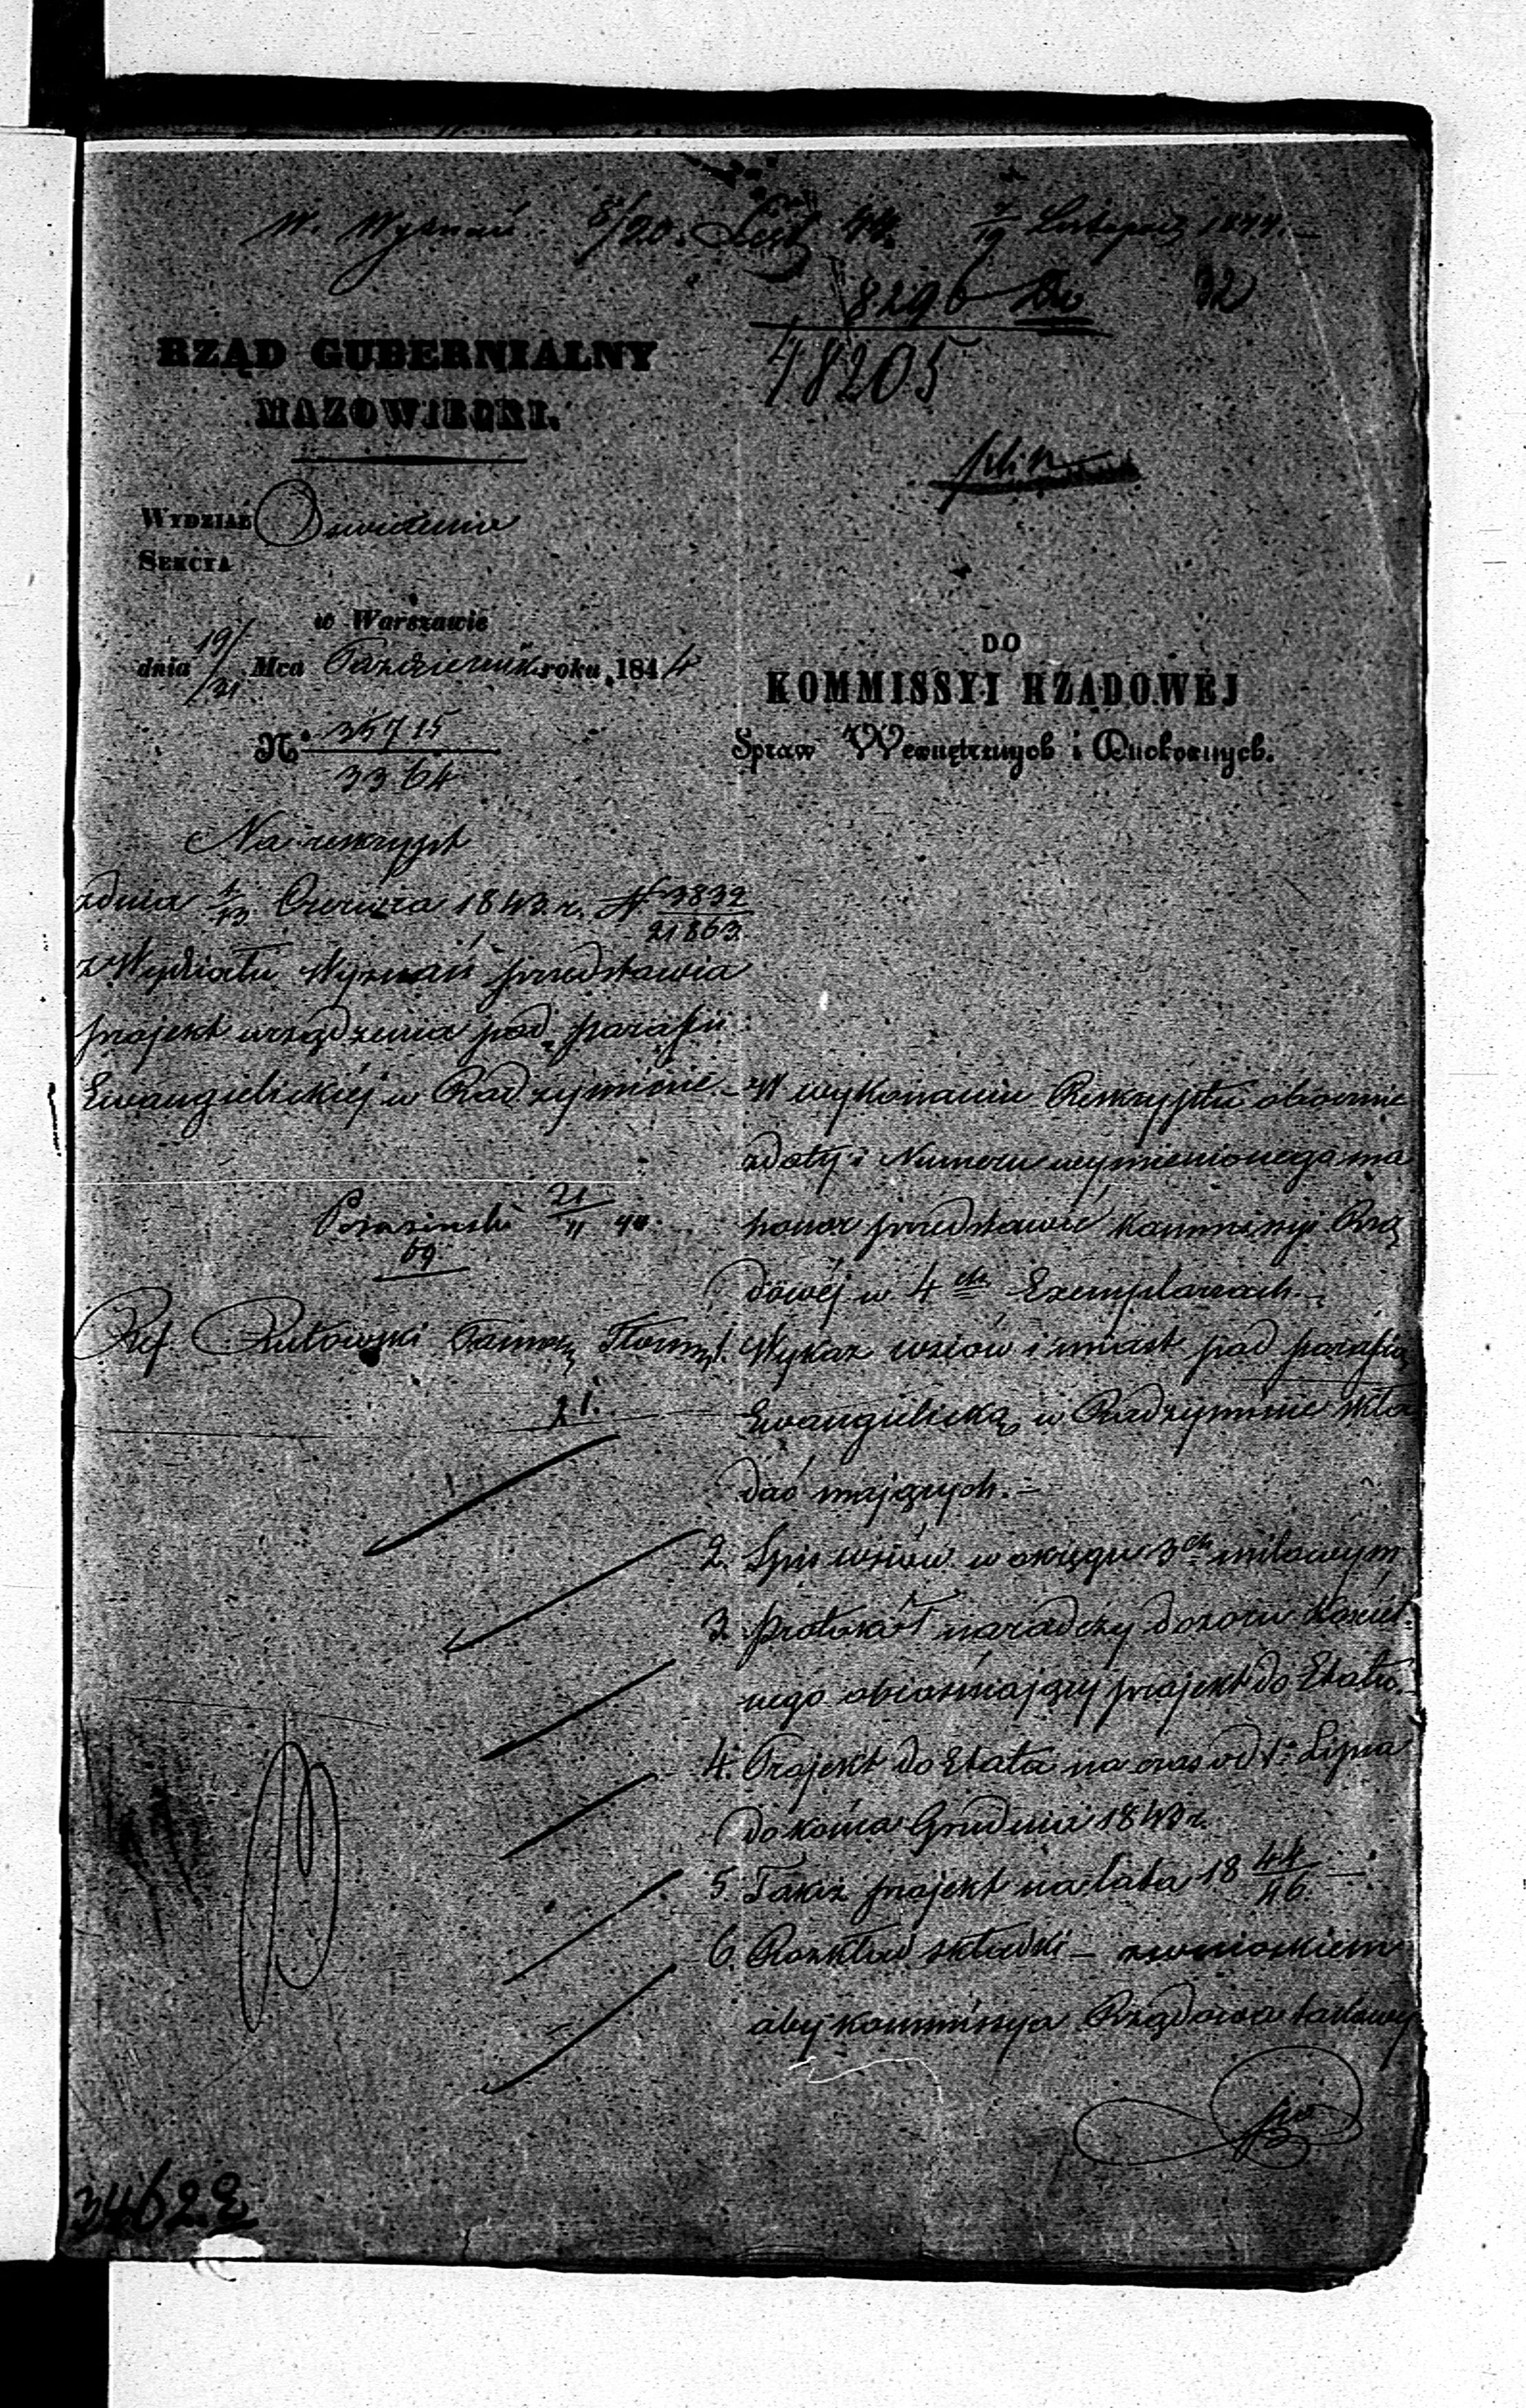 W. Wyznań. 8/20. List 44. 7/19 Listopad 1844.
8296 32
48205
RZĄD GUBERNIALNY
MAZOWIECKI.
WYDZIAŁ Oswiecenia
SEKCYA
w Warszawie
dnia 19/31 Mca Października roku 1844
N° 35715
3364
DO
KOMMISSYI RZĄDOWÉJ
Spraw Wewnętrznych i Duchownych.
Na reskrypt
z dnia 1/13 Czerwca 1843 r. N 3832
21863
z Wydziału Wyznań przedstawia
projekt urządzenia pod parafii
Ewangielickiéj w Radzyminie.
21/11 44.
69
Ref. Rutowski
21.
W wykonaniu Reskryptu obocznie
z daty i Numeru wymienionego ma
honor przedstawić Kommissyi Rzą
dowéj w 4ch Exemplarzach.
Wykaz wsiów i miast pod parafią
Ewangielicką w Radzyminie skła
dać mających.
2. Spis wsiów w okręgu 3ch milowym
3. Protokół naradczy dozoru Kościel
nego obiaśniający projekt do Etatu.
4. Projekt do Etatu na czas od 1° Lipca
do końca Grudnia 1843 r.
5 Takiż projekt na lata 18 44/46
6. Rozkład składki – z wnioskiem
aby Kommissya Rządowa takowy
3462 2